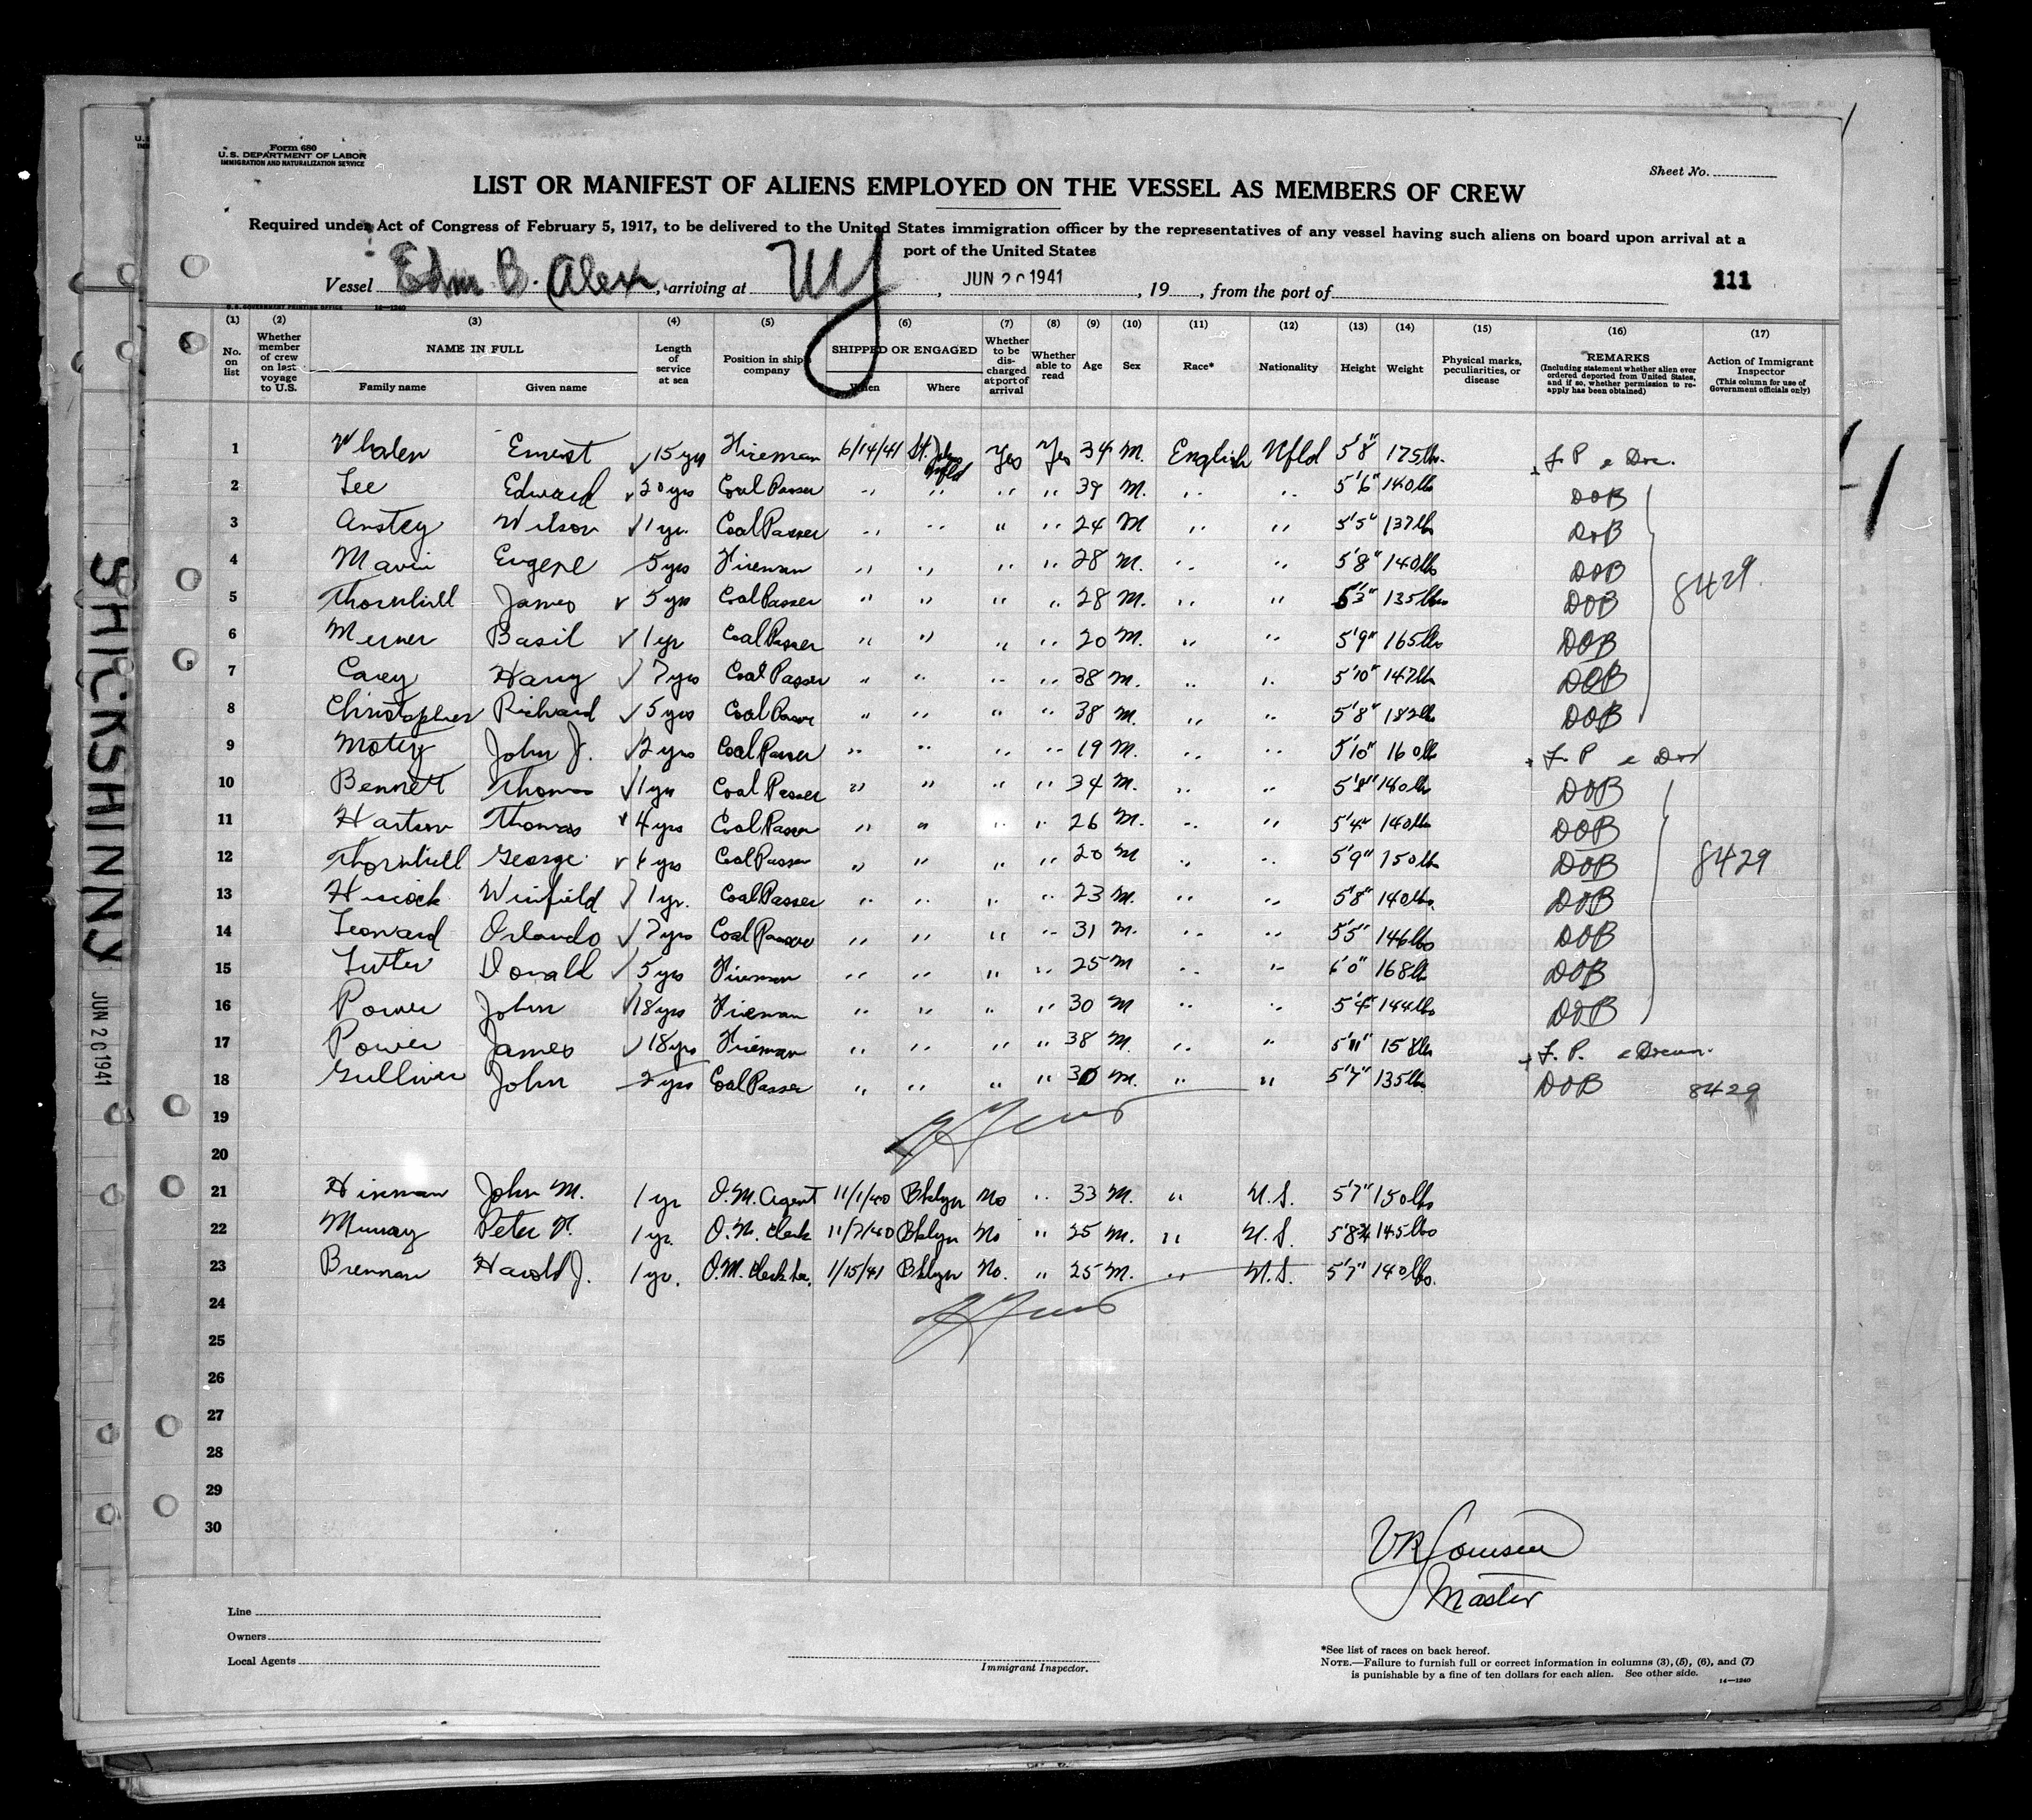 Form 680
U.S. DEPARTMENT OF LABOR
IMMIGRATION AND NATURALIZATION SERVICE
Sheet No.
LIST OR MANIFEST OF ALIENS EMPLOYED ON THE VESSEL AS MEMBERS OF CREW
Required under Act of Congress of February 5, 1917, to be delivered to the United States immigration officer by the representatives of any vessel having such aliens on board upon arrival at a
port of the United States
Vessel Edm B. Alex, arriving at NY, JUN 20 1941, 19, from the port of 111
U.S. GOVERNMENT PRINTING OFFICE 14—1240
(1) (2) (3) (4) (5) (6) (7) (8) (9) (10) (11) (12) (13) (14) (15) (16) (17)
No. on list
Whether member of crew on last voyage to U.S.
NAME IN FULL
Family name Given name
Length of service at sea
Position in ship company
SHIPPED OR ENGAGED
When Where
Whether to be discharged at port of arrival
Whether able to read
Age Sex Race* Nationality Height Weight
Physical marks, peculiarities, or disease
REMARKS
(Including statement whether alien ever ordered deported from United States, and if so, whether permission to reapply has been obtained)
Action of Immigrant Inspector
(This column for use of Government officials only)
1 Whalen Ernest √ 15 yrs Fireman 6/14/41 St. Johns Nfld Yes Yes 34 M. English Nfld 5'8" 175 lbs.
2 Lee Edward √ 20 yrs Coal Passer " " " " 39 M. " " 5'6" 140 lbs DOB
3 Anstey Wilson √ 1 yr. Coal Passer " " " " 24 M " " 5'5" 137 lbs DOB
4 Mavin Eugene 5 yrs Fireman " " " " 28 M. " " 5'8" 140 lbs DOB
5 Thornhill James √ 5 yrs Coal Passer " " " " 28 M. " " 5'3" 135 lbs DOB 8429
6 Merner Basil √ 1 yr Coal Passer " " " " 20 M. " " 5'9" 165 lbs DOB
7 Carey Harry √ 7 yrs Coal Passer " " " " 38 M. " " 5'10" 147 lbs DOB
8 Christopher Richard √ 5 yrs Coal Passer " " " " 38 M. " " 5'8" 182 lbs DOB
9 Motty John J. √ 2 yrs Coal Passer " " " " 19 M. " " 5'10" 160 lb
10 Bennett Thomas √ 1 yr Coal Passer " " " " 34 M. " " 5'8" 140 lbs DOB
11 Hartson Thomas √ 4 yrs Coal Passer " " " " 26 M. " " 5'4" 140 lbs DOB
12 Thornhill George √ 4 yrs Coal Passer " " " " 20 M " " 5'9" 150 lbs DOB 8429
13 Hiscock Winfield √ 1 yr. Coal Passer " " " " 23 M. " " 5'8" 140 lbs. DOB
14 Leonard Orlando √ 7 yrs Coal Passer " " " " 31 M. " " 5'5" 146 lbs DOB
15 Tutter Donald √ 5 yrs Fireman " " " " 25 M " " 6'0" 168 lb DOB
16 Power John √ 18 yrs Fireman " " " " 30 M " " 5'4" 144 lbs DOB
17 Power James √ 18 yrs Fireman " " " " 38 M. " " 5'11" 158 lbs
18 Gulliver John 2 yrs Coal Passer " " " " 30 M. " " 5'7" 135 lbs DOB 8429
19
20
21 Hinman John M. 1 yr Q.M. Agent 11/1/40 Bklyn No " 33 M. " U.S. 5'7" 150 lbs
22 Murray Peter F. 1 yr. Q.M. Clerk 11/7/40 Bklyn No " 25 M. " U.S. 5'8¾ 145 lbs
23 Brennan Harold J. 1 yr. Q.M. Clerk 1/15/41 Bklyn No. " 25 M. " U.S. 5'7" 140 lbs.
24
25
26
27
28
29
30
Master
Line
Owners
Local Agents
Immigrant Inspector.
*See list of races on back hereof.
NOTE.—Failure to furnish full or correct information in columns (3), (5), (6), and (7)
is punishable by a fine of ten dollars for each alien. See other side.
14—1240
SHICKSHINNY JUN 20 1941